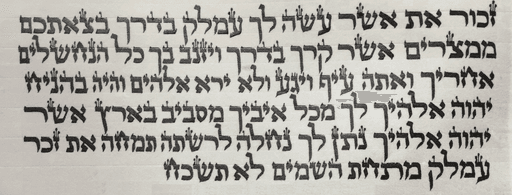 זכור את אשר עשה לך עמלק בדרך בצאתכם
ממצרים אשר קרך בדרך ויזנב בך כל הנחשלים
אחריך ואתה עיף ויגע ולא ירא אלהים והיה בהניח
יהוה אלהיך לך מכל איביך מסביב בארץ אשר
יהוה אלהיך נתן לך נחלה לרשתה תמחה את זכר
עמלק מתחת השמים לא תשכח